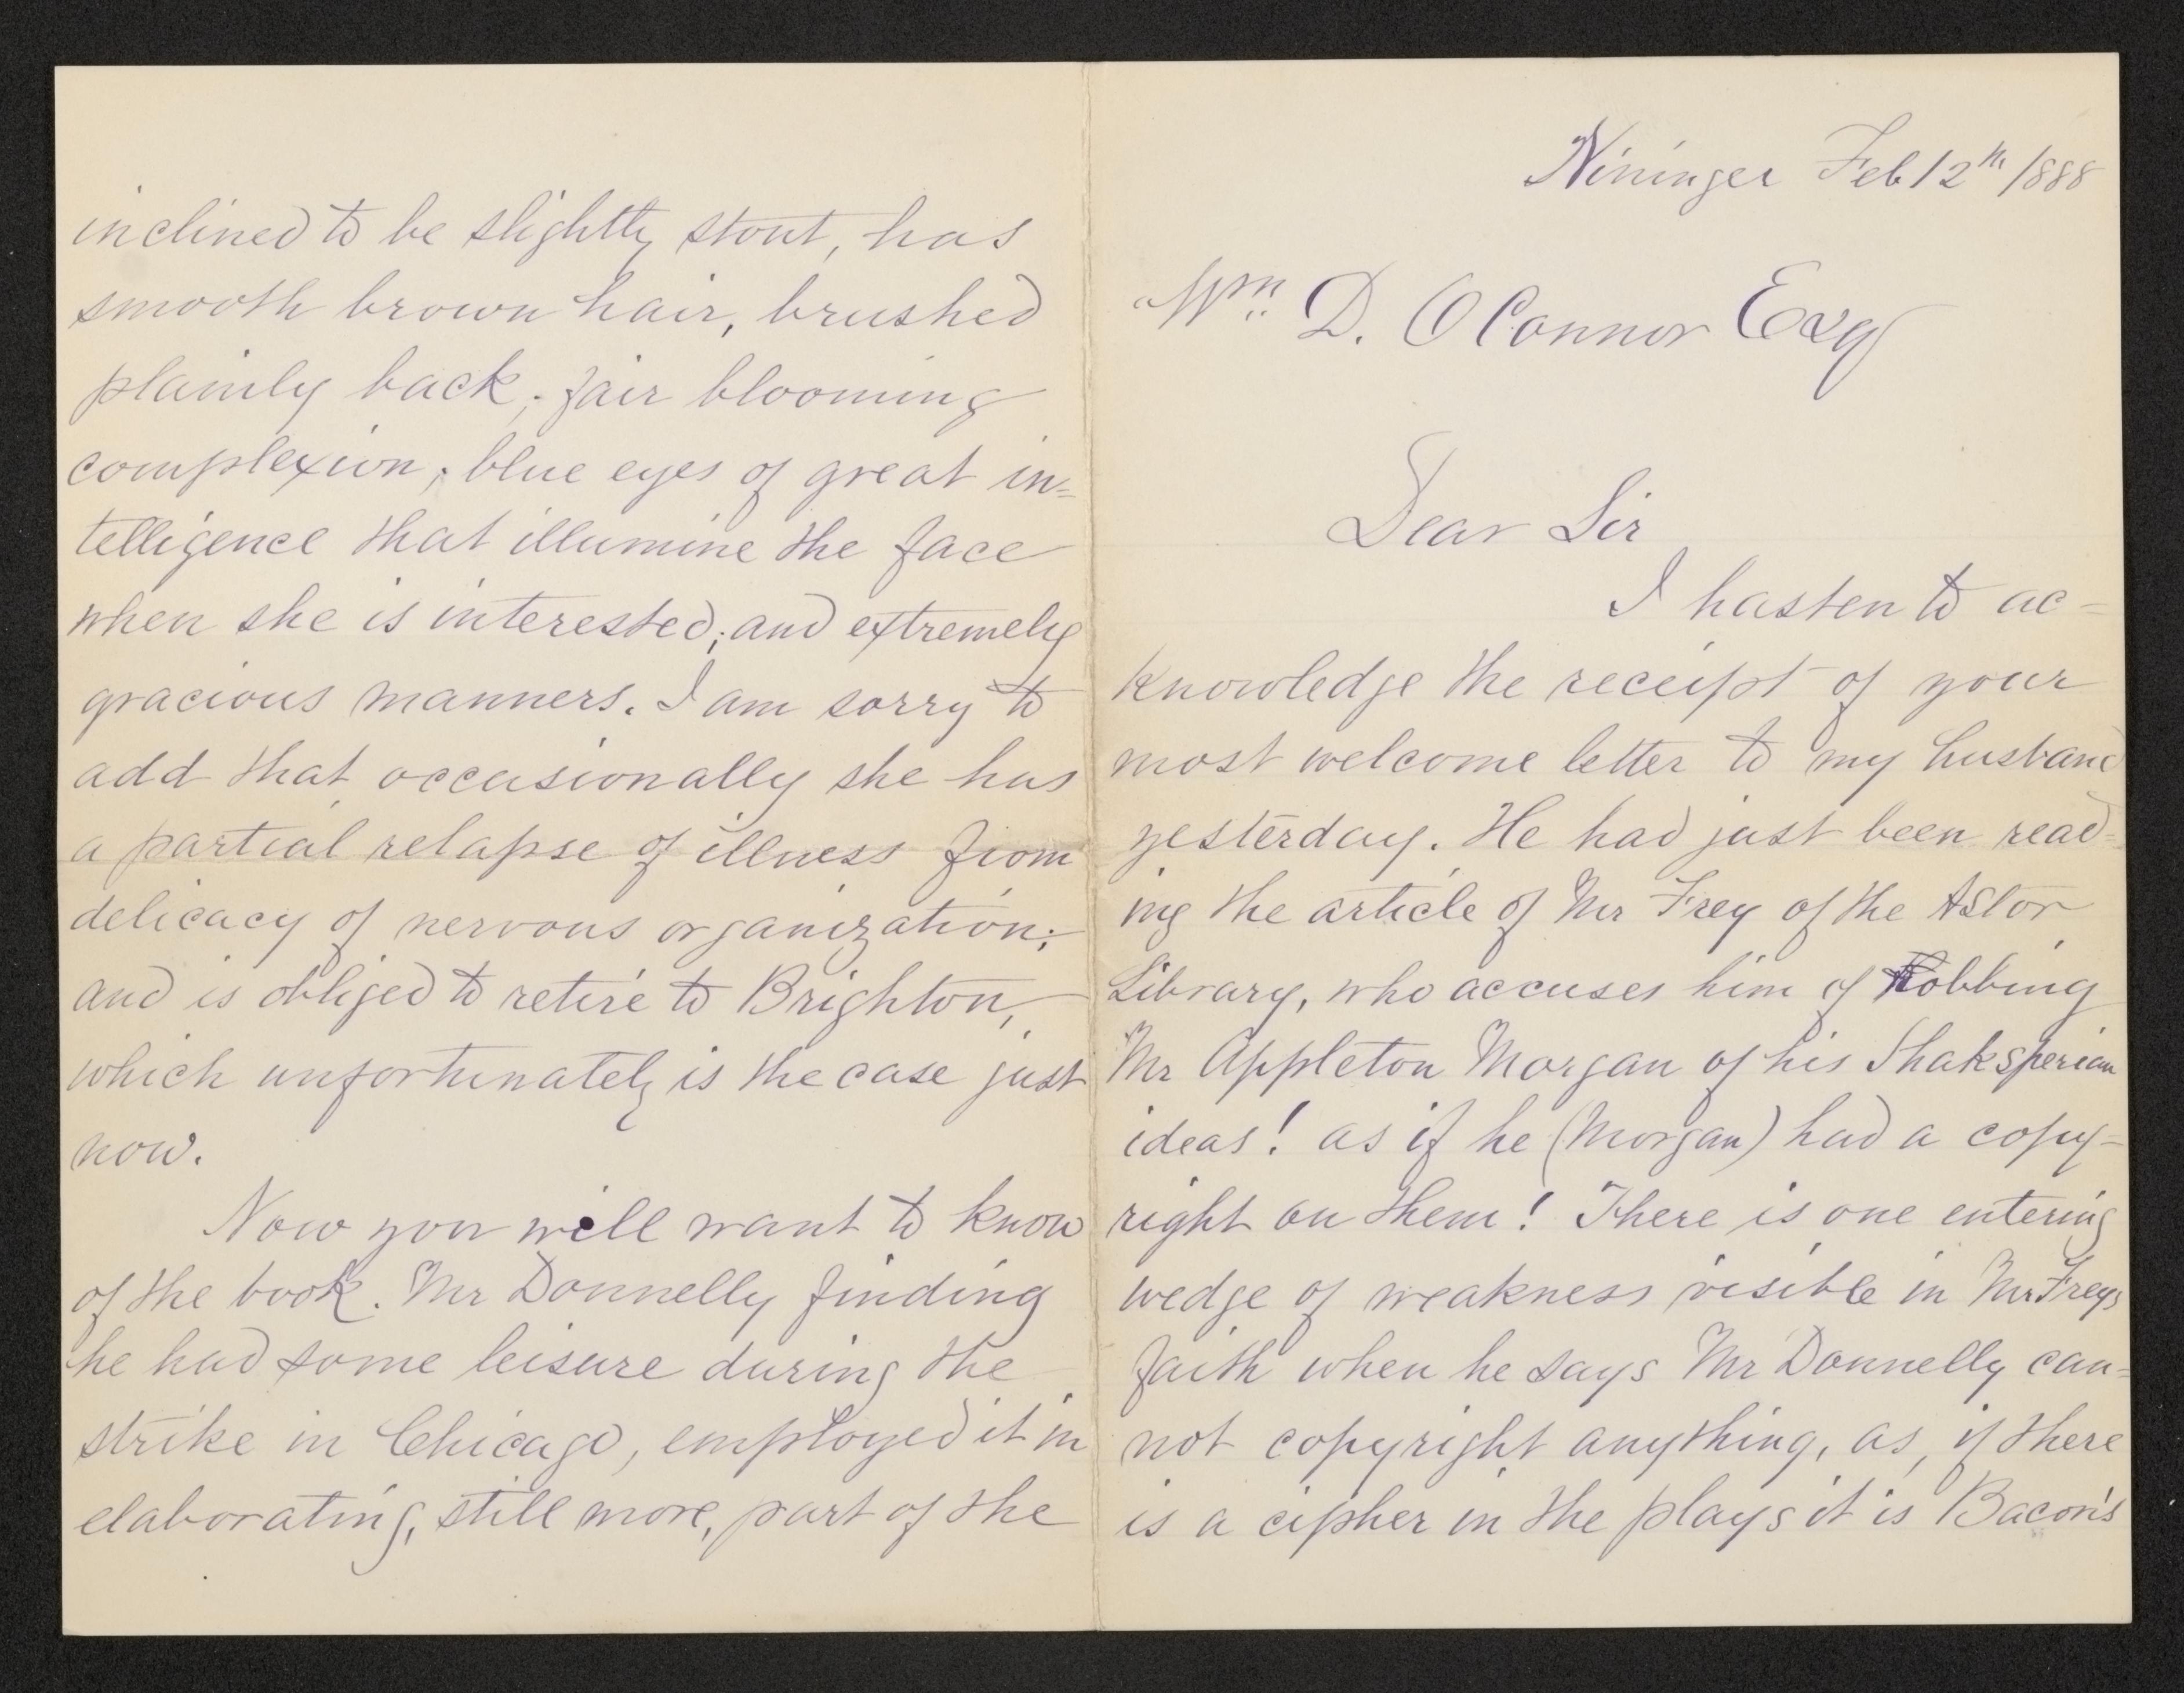 inclined to be slightly stout, has
smooth brown hair, brushed
plainly back; fair blooming
complexion; blue eyes of great in-
telligence that illumine the face
when she is interested; and extremely
gracious manners. I am sorry to
add that occasionally she has
a partial relapse of illness from
delicacy of nervous organization;
and is obliged to retire to Brighton,
which unfortunately is the case just
now.
Now you will want to know
of the book. Mr Donnelly finding
he had some leisure during the
strike in Chicago, employed it in
elaborating, still more, part of the
Nininger Feb 12th 1888
Wm. D. O Connor Esq
Dear Sir
I hasten to ac-
knowledge the receipt of your
most welcome letter to my husband
yesterday. He had just been read-
ing the article of Mr Frey of the Astor
Library, who accuses him of Robbing
Mr Appleton Morgan of his Shaksperian
ideas! as if he (Morgan) had a copy-
right on them! There is one entering
wedge of weakness visible in Mr Freys
faith when he says Mr Donnelly can-
not copyright anything, as, if there
is a cipher in the plays it is Bacon's